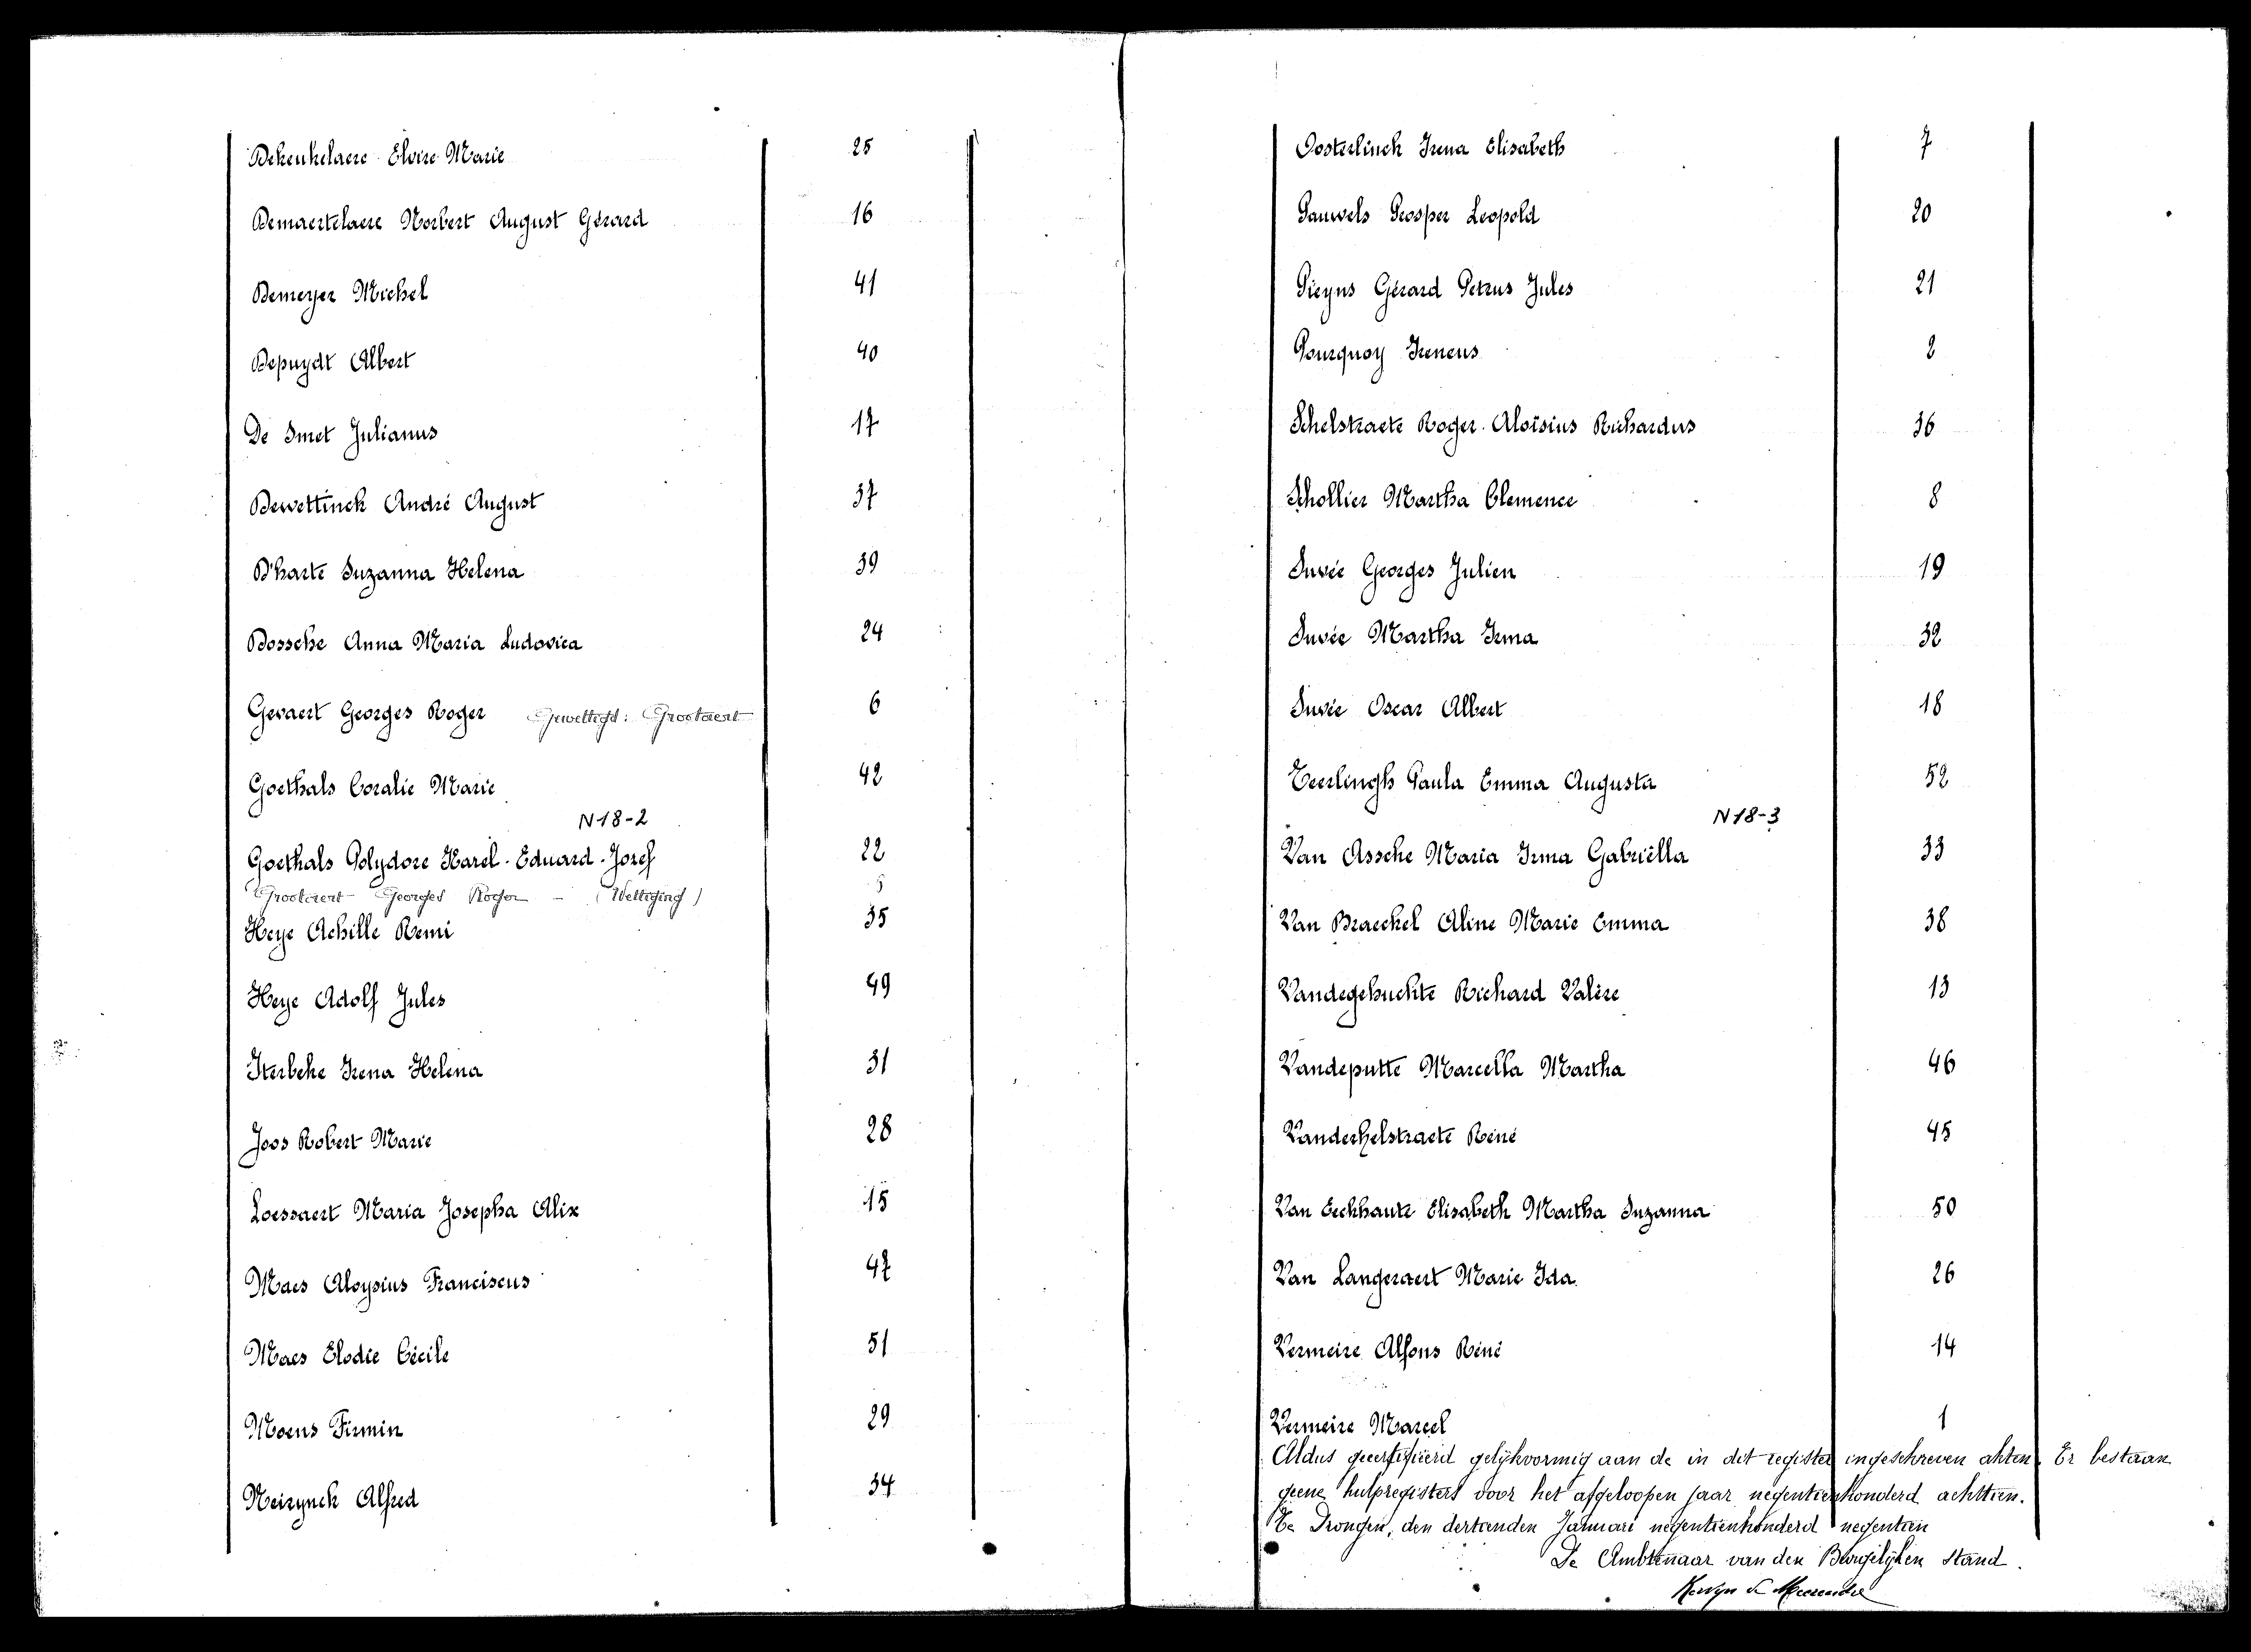 Dekeukelaere Elvire Marie 25
Demaertelaere Norbert August Gérard 16
Demeyer Michel 41
Depuydt Albert 40
De Smet Julianus 17
Dewettinck André August 37
D'harte Suzanna Helena 39
Dossche Anna Maria Ludovica 24
Gevaert Georges Roger Gewettigd: Grootaert 6
Goethals Coralie Marie 42
N18-2
Goethals Polydore Karel-Eduard-Jozef 22
Grootaert Georges Roger - (Wettiging) 6
Heye Achille Remi 35
Heye Adolf Jules 49
Iterbeke Irena Helena 31
Joos Robert Marie 28
Loessaert Maria Josepha Alix 15
Maes Aloysius Franciscus 47
Maes Elodie Cécile 51
Moens Firmin 29
Neirynck Alfred 34
Oosterlinck Irena Elisabeth 7
Pauwels Prosper Leopold 20
Pieyns Gérard Petrus Jules 21
Pourquoy Ireneus 2
Schelstraete Roger Aloïsius Richardus 36
Schollier Martha Clemence 8
Suvée Georges Julien 19
Suvée Martha Irma 32
Suvée Oscar Albert 18
Teerlingh Paula Emma Augusta 52
N18-3
Van Assche Maria Irma Gabriëlla 33
Van Braeckel Aline Marie Emma 38
Vandegehuchte Richard Valère 13
Vandeputte Marcella Martha 46
Vanderhelstraete Réné 45
Van Eeckhaute Elisabeth Martha Suzanna 50
Van Langeraert Marie Ida 26
Vermeire Alfons Réné 14
Vermeire Marcel 1
Aldus gecertifiëerd gelijkvormig aan de in dit register ingeschreven akten. Er bestaan
geene hulpregisters voor het afgeloopen jaar negentienhonderd achttien.
Te Drongen, den dertienden Januari negentienhonderd negentien
De Ambtenaar van den Burgelijken stand.
Kervyn de Meerendré